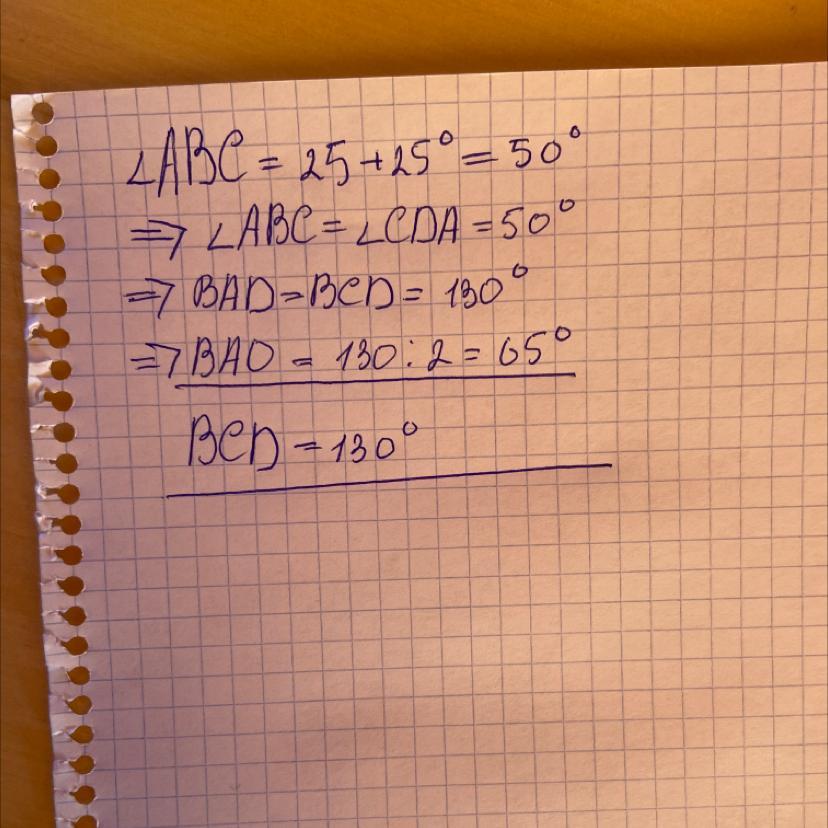 ∠ABC = 25 + 25° = 50°
⇒ ∠ABC = ∠CDA = 50°
⇒ BAD = BCD = 130°
⇒ BAO = 130 : 2 = 65°
BCD = 130°